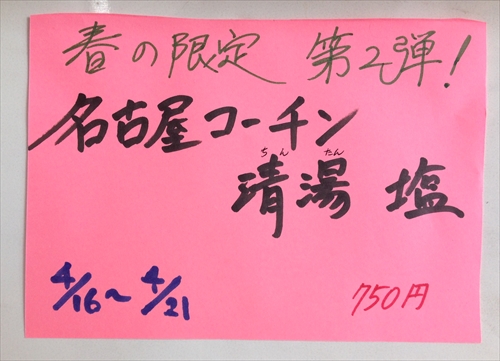 春の限定 第2弾!
名古屋コーチン
ちんたん
清湯 塩
4/16～4/21
750円